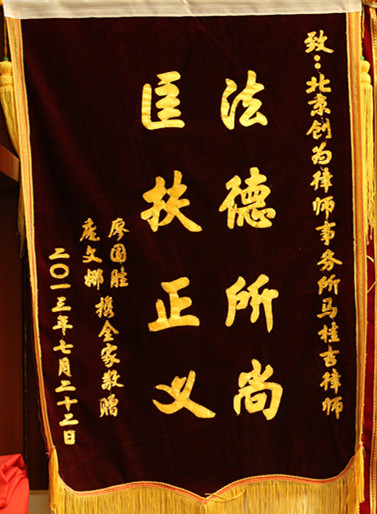 致：北京创为律师事务所马桂吉律师
法德所尚
匡扶正义
廖国胜
庞文娜 携全家敬赠
二〇一三年七月二十二日